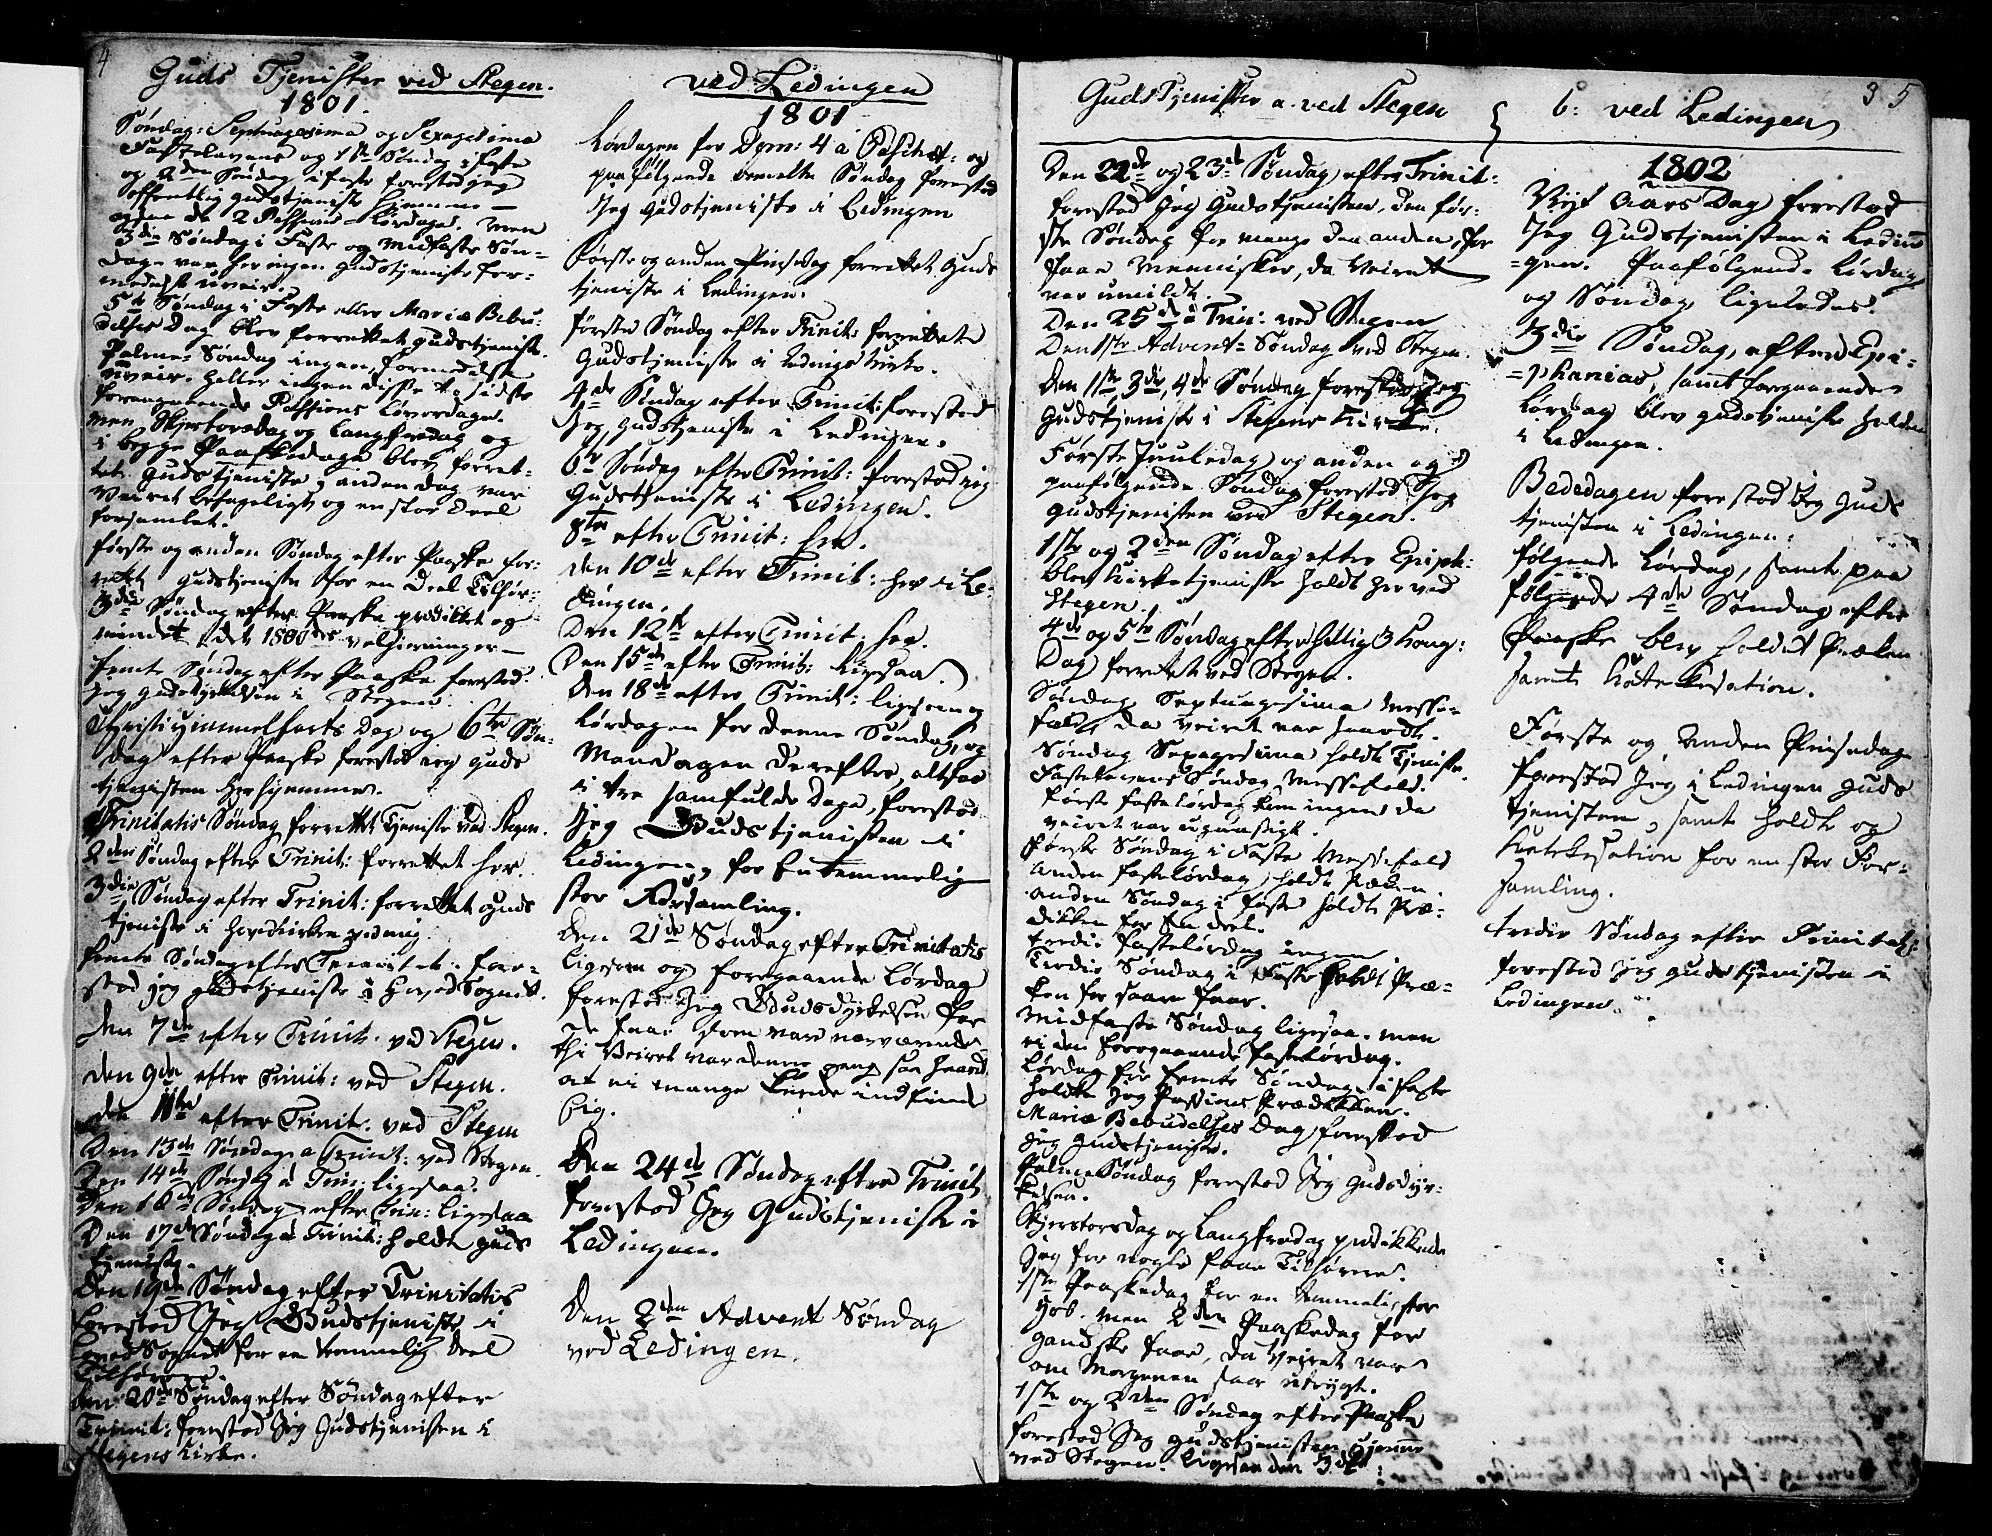 4
Guds Tjenister ved Stegen.
1801.
Søndag: Septuagesima og Sexagesima
Fastelavens og 1ste Søndag i faste
og 2den Søndag i faste forestod jeg
offentlig gudstjeniste hjemme —
ogsaa de 2 Passions-Lørdage. Men
3die Søndag i Faste og Midfaste Søn-
dage var her ingen gudstjeniste for-
medelst uveir.
5te Søndag i Faste eller Mariæ Bebu-
delses Dag blev forrettet gudstjeniste.
Palme-Søndag ingen, formedelst
uveir. heller ingen disse sidste
foregaaende Passions Løverdage.
men Skjertorsdag og Langfredag og
i begge Paaskedage blev forret-
tet Gudstjeniste, anden dag var
Veiret behageligt og en stor Deel
forsamlet.
første og anden Søndag efter Paaske for-
rettet gudstjeniste for en Deel Tilhør-
3die Søndag efter Paaske prædiket og
mindet det 1800des velgierninger —
femte Søndag efter Paaske forestod
Jeg gudstjenisten i Stegen.
Christi Himmelfarts Dag og 6te Søn-
dag efter Paaske forestod jeg guds
tjenisten her hjemme.
Trinitatis Søndag forrettet Tjeniste ved Stegen.
2den Søndag efter Trinit: forrettet her.
3die Søndag efter Trinit: forrettet guds
tjeniste i Hovedkirken
femte Søndag efter Trinitat: fore-
stod jeg gudstjeniste i Hoved Sognet.
Den 7de efter Trinit. ved Stegen.
Den 9de efter Trinit: ved Stegen.
Den 11te efter Trinit. ved Stegen
Den 13de Søndag a Trinit: ved Stegen.
Den 14de Søndag a Trin: ligesaa.
Den 16de Søndag efter Trin: ligesaa
Den 17de Søndag a Trinit: holdt guds
tjeniste.
Den 19de Søndag efter Trinitatis
forestod Jeg Gudstjeniste i
Hoved Sognet for en temmelig Deel
Tilhørere.
Den 20de Søndag efter Søndag efter
Trinit: forestod Jeg Gudstjenisten i
Stegens Kirke.
ved Ledingen
1801
Lørdagen for Dom: 4 a Paschat: og
paa følgende bemelte Søndag forestod
Jeg Gudstjeniste i Ledingen
Første og anden Pinsedag forrettet Guds
tjeniste i Ledingen.
første Søndag efter Trinit: forrettet
Gudstjeniste i Ledings Kirke.
4de Søndag efter Trinit: forestod
Jeg gudstjeniste i Ledingen.
6te Søndag efter Trinit: forestod jeg
Gudstjeniste i Ledingen.
8de efter Trinit: her.
Den 10de efter Trinit: her i Le-
dingen.
Den 12te efter Trinit: her.
Den 15de efter Trinit: ligesaa.
Den 18de efter Trinit: ligesom og
Lørdagen for denne Søndag, og
Mandagen derefter, altsaa
i tre samfulde Dage, forestod
Jeg Gudstjenisten i
Ledingen, for En temmelig
stor Forsamling.
Den 21de Søndag efter Trinitatis
ligesom og foregaaende Lørdag
forestod Jeg Gudsdyrkelsen for
de faae som vare nærværende
thi Veiret var denne gang saa haardt
at ei mange kunde indfinde
sig.
Den 24de Søndag efter Trinit
forestod Jeg Gudstjeniste i
Ledingen.
Den 2den Advent Søndag
ved Ledingen.
Guds Tjenister a. ved Stegen
b: ved Ledingen
3 5
Den 22de og 23de Søndag efter Trinit:
forestod Jeg Gudstjenisten, den før-
ste Søndag for mange den anden for
faae Mennisker, da Veiret
var umildt.
Den 25de a Trin: ved Stegen
Den 1ste Advent-Søndag ved Stegen.
Den 1ste, 3die, 4de Søndag forestod Jeg
Gudstjeniste i Stegens Kirke.
Første Juuledag og anden og
paafølgende Søndag forestod Jeg
gudstjenisten ved Stegen.
1ste og 2den Søndag efter Epiph:
blev Kirketjeniste holdt her ved
Stegen.
4de og 5te Søndag efter hellig 3 Kong:
Dag forrettet ved Stegen.
Søndag Septuagesima Messe-
fald, da Veiret var haardt.
Søndag Sexagesima holdt Tjeniste.
Fastelavens Søndag Messefald.
første fastelørdag kom ingen da
Veiret var ugunstigt.
første Søndag i Faste Messefald
anden fastelørdag holdt Præken.
anden Søndag i faste holdt Præ-
diken for En deel.
tredie fastelørdag ingen
Tredie Søndag i Faste holdt Præ-
ken for saare faae.
Midfaste Søndag ligesaa. men
ei den foregaaende fastelørdag.
Lørdag før femte Søndag i faste
holdte Jeg Passions Prædikken.
Mariæ Bebudelses Dag forestod
Jeg gudstjeniste.
Palme Søndag forestod Jeg Gudsdyr-
kelsen.
Skjertorsdag og Langfredag prædikkede
Jeg for nogle faae Tilhørere.
1ste Paaskedag for en temmelig stor
Hob. men 2den Paaskedag for
ganske faae, da Veiret var
om Morgenen saa utrygt.
1ste og 2den Søndag efter Paaske
forestod Jeg gudstjenisten hjemme
ved Stegen. Ligesaa den 3die:
1802
Nyt Aars Dag forestod
Jeg Gudstjenisten i Ledin-
=gen. Paafølgende Lørdag
og Søndag ligeledes.
3die Søndag, efter Epi-
=phanias, samt foregaaende
Lørdag blev gudstjeniste holden
i Ledingen.
Bededagen forestod Jeg Guds
tjenisten i Ledingen:
følgende Lørdag, samt paa
følgende 4de Søndag efter
Paaske blev holdet Præken
samt Katekisation.
Første og Anden Pinsedage
forestod Jeg i Ledingen Guds
tjenisten, samt holdt og
Katekisation for en stor For-
samling.
tredie Søndag efter Trinitatis:
forestod Jeg gudstjenisten i
Ledingen.